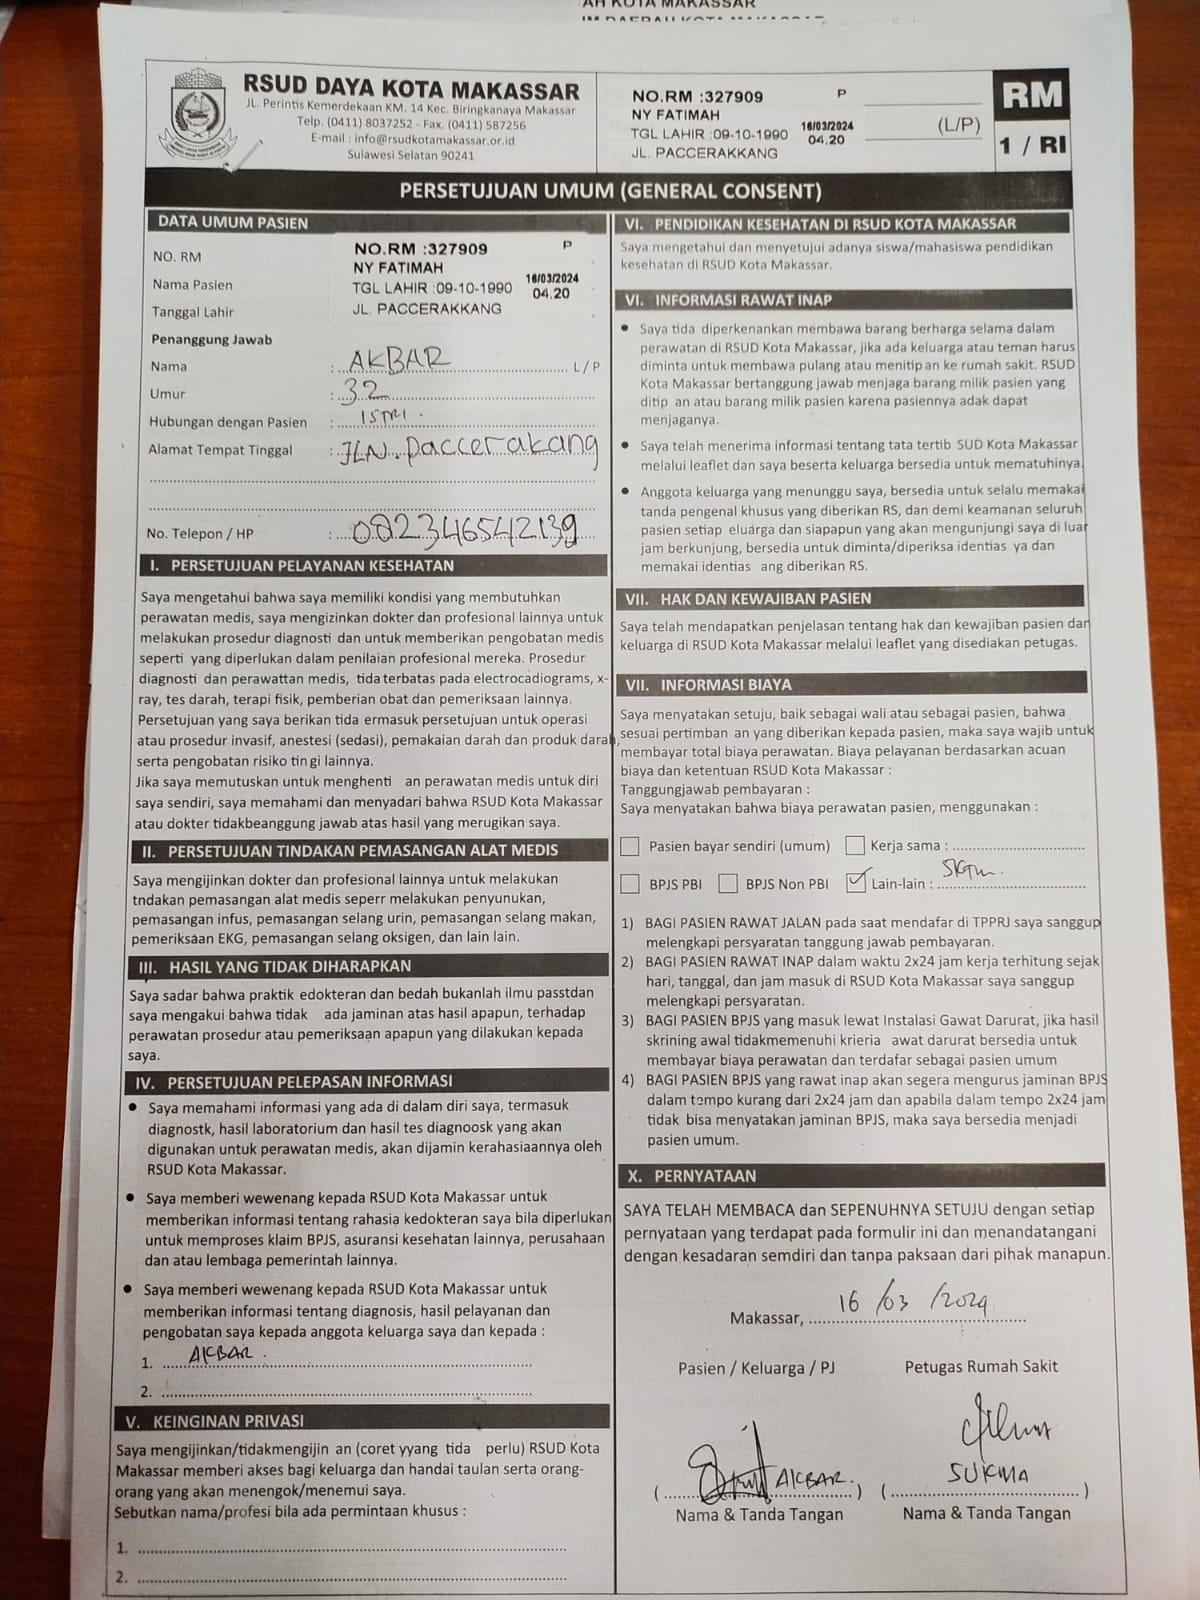 AH KOTA MAKASSAR
RSUD DAYA KOTA MAKASSAR
JL. Perintis Kemerdekaan KM. 14 Kec. Biringkanaya Makassar
Telp. (0411) 8037252 - Fax. (0411) 587256
E-mail : info@rsudkotamakassar.or.id
Sulawesi Selatan 90241
NO.RM :327909 P
NY FATIMAH
TGL LAHIR :09-10-1990 16/03/2024 04.20
JL. PACCERAKKANG
(L/P)
RM
1 / RI
PERSETUJUAN UMUM (GENERAL CONSENT)
DATA UMUM PASIEN
NO. RM
Nama Pasien
Tanggal Lahir
NO.RM :327909 P
NY FATIMAH
TGL LAHIR :09-10-1990 16/03/2024 04.20
JL. PACCERAKKANG
Penanggung Jawab
Nama : AKBAR L / P
Umur : 32
Hubungan dengan Pasien : ISTRI.
Alamat Tempat Tinggal : JLN. paccerakang
No. Telepon / HP : 082346542139
I. PERSETUJUAN PELAYANAN KESEHATAN
Saya mengetahui bahwa saya memiliki kondisi yang membutuhkan
perawatan medis, saya mengizinkan dokter dan profesional lainnya untuk
melakukan prosedur diagnosti dan untuk memberikan pengobatan medis
seperti yang diperlukan dalam penilaian profesional mereka. Prosedur
diagnosti dan perawattan medis, tida terbatas pada electrocadiograms, x-
ray, tes darah, terapi fisik, pemberian obat dan pemeriksaan lainnya.
Persetujuan yang saya berikan tida ermasuk persetujuan untuk operasi
atau prosedur invasif, anestesi (sedasi), pemakaian darah dan produk darah,
serta pengobatan risiko tin gi lainnya.
Jika saya memutuskan untuk menghenti an perawatan medis untuk diri
saya sendiri, saya memahami dan menyadari bahwa RSUD Kota Makassar
atau dokter tidakbeanggung jawab atas hasil yang merugikan saya.
II. PERSETUJUAN TINDAKAN PEMASANGAN ALAT MEDIS
Saya mengijinkan dokter dan profesional lainnya untuk melakukan
tndakan pemasangan alat medis seperr melakukan penyunukan,
pemasangan infus, pemasangan selang urin, pemasangan selang makan,
pemeriksaan EKG, pemasangan selang oksigen, dan lain lain.
III. HASIL YANG TIDAK DIHARAPKAN
Saya sadar bahwa praktik edokteran dan bedah bukanlah ilmu passtdan
saya mengakui bahwa tidak ada jaminan atas hasil apapun, terhadap
perawatan prosedur atau pemeriksaan apapun yang dilakukan kepada
saya.
IV. PERSETUJUAN PELEPASAN INFORMASI
• Saya memahami informasi yang ada di dalam diri saya, termasuk
diagnostk, hasil laboratorium dan hasil tes diagnoosk yang akan
digunakan untuk perawatan medis, akan dijamin kerahasiaannya oleh
RSUD Kota Makassar.
• Saya memberi wewenang kepada RSUD Kota Makassar untuk
memberikan informasi tentang rahasia kedokteran saya bila diperlukan
untuk memproses klaim BPJS, asuransi kesehatan lainnya, perusahaan
dan atau lembaga pemerintah lainnya.
• Saya memberi wewenang kepada RSUD Kota Makassar untuk
memberikan informasi tentang diagnosis, hasil pelayanan dan
pengobatan saya kepada anggota keluarga saya dan kepada :
1. AKBAR.
2.
V. KEINGINAN PRIVASI
Saya mengijinkan/tidakmengijin an (coret yyang tida perlu) RSUD Kota
Makassar memberi akses bagi keluarga dan handai taulan serta orang-
orang yang akan menengok/menemui saya.
Sebutkan nama/profesi bila ada permintaan khusus :
1.
2.
VI. PENDIDIKAN KESEHATAN DI RSUD KOTA MAKASSAR
Saya mengetahui dan menyetujui adanya siswa/mahasiswa pendidikan
kesehatan di RSUD Kota Makassar.
VI. INFORMASI RAWAT INAP
• Saya tida diperkenankan membawa barang berharga selama dalam
perawatan di RSUD Kota Makassar, jika ada keluarga atau teman harus
diminta untuk membawa pulang atau menitip an ke rumah sakit. RSUD
Kota Makassar bertanggung jawab menjaga barang milik pasien yang
ditip an atau barang milik pasien karena pasiennya adak dapat
menjaganya.
• Saya telah menerima informasi tentang tata tertib SUD Kota Makassar
melalui leaflet dan saya beserta keluarga bersedia untuk mematuhinya.
• Anggota keluarga yang menunggu saya, bersedia untuk selalu memakai
tanda pengenal khusus yang diberikan RS, dan demi keamanan seluruh
pasien setiap eluarga dan siapapun yang akan mengunjungi saya di luar
jam berkunjung, bersedia untuk diminta/diperiksa identias ya dan
memakai identias ang diberikan RS.
VII. HAK DAN KEWAJIBAN PASIEN
Saya telah mendapatkan penjelasan tentang hak dan kewajiban pasien dan
keluarga di RSUD Kota Makassar melalui leaflet yang disediakan petugas.
VII. INFORMASI BIAYA
Saya menyatakan setuju, baik sebagai wali atau sebagai pasien, bahwa
sesuai pertimban an yang diberikan kepada pasien, maka saya wajib untuk
membayar total biaya perawatan. Biaya pelayanan berdasarkan acuan
biaya dan ketentuan RSUD Kota Makassar :
Tanggungjawab pembayaran :
Saya menyatakan bahwa biaya perawatan pasien, menggunakan :
Pasien bayar sendiri (umum) Kerja sama :
BPJS PBI BPJS Non PBI Lain-lain : SKTM.
1) BAGI PASIEN RAWAT JALAN pada saat mendafar di TPPRJ saya sanggup
melengkapi persyaratan tanggung jawab pembayaran.
2) BAGI PASIEN RAWAT INAP dalam waktu 2x24 jam kerja terhitung sejak
hari, tanggal, dan jam masuk di RSUD Kota Makassar saya sanggup
melengkapi persyaratan.
3) BAGI PASIEN BPJS yang masuk lewat Instalasi Gawat Darurat, jika hasil
skrining awal tidakmemenuhi krieria awat darurat bersedia untuk
membayar biaya perawatan dan terdafar sebagai pasien umum
4) BAGI PASIEN BPJS yang rawat inap akan segera mengurus jaminan BPJS
dalam tempo kurang dari 2x24 jam dan apabila dalam tempo 2x24 jam
tidak bisa menyatakan jaminan BPJS, maka saya bersedia menjadi
pasien umum.
X. PERNYATAAN
SAYA TELAH MEMBACA dan SEPENUHNYA SETUJU dengan setiap
pernyataan yang terdapat pada formulir ini dan menandatangani
dengan kesadaran semdiri dan tanpa paksaan dari pihak manapun.
Makassar, 16 /03 /2024
Pasien / Keluarga / PJ Petugas Rumah Sakit
( AKBAR. ) ( SUKMA )
Nama & Tanda Tangan Nama & Tanda Tangan